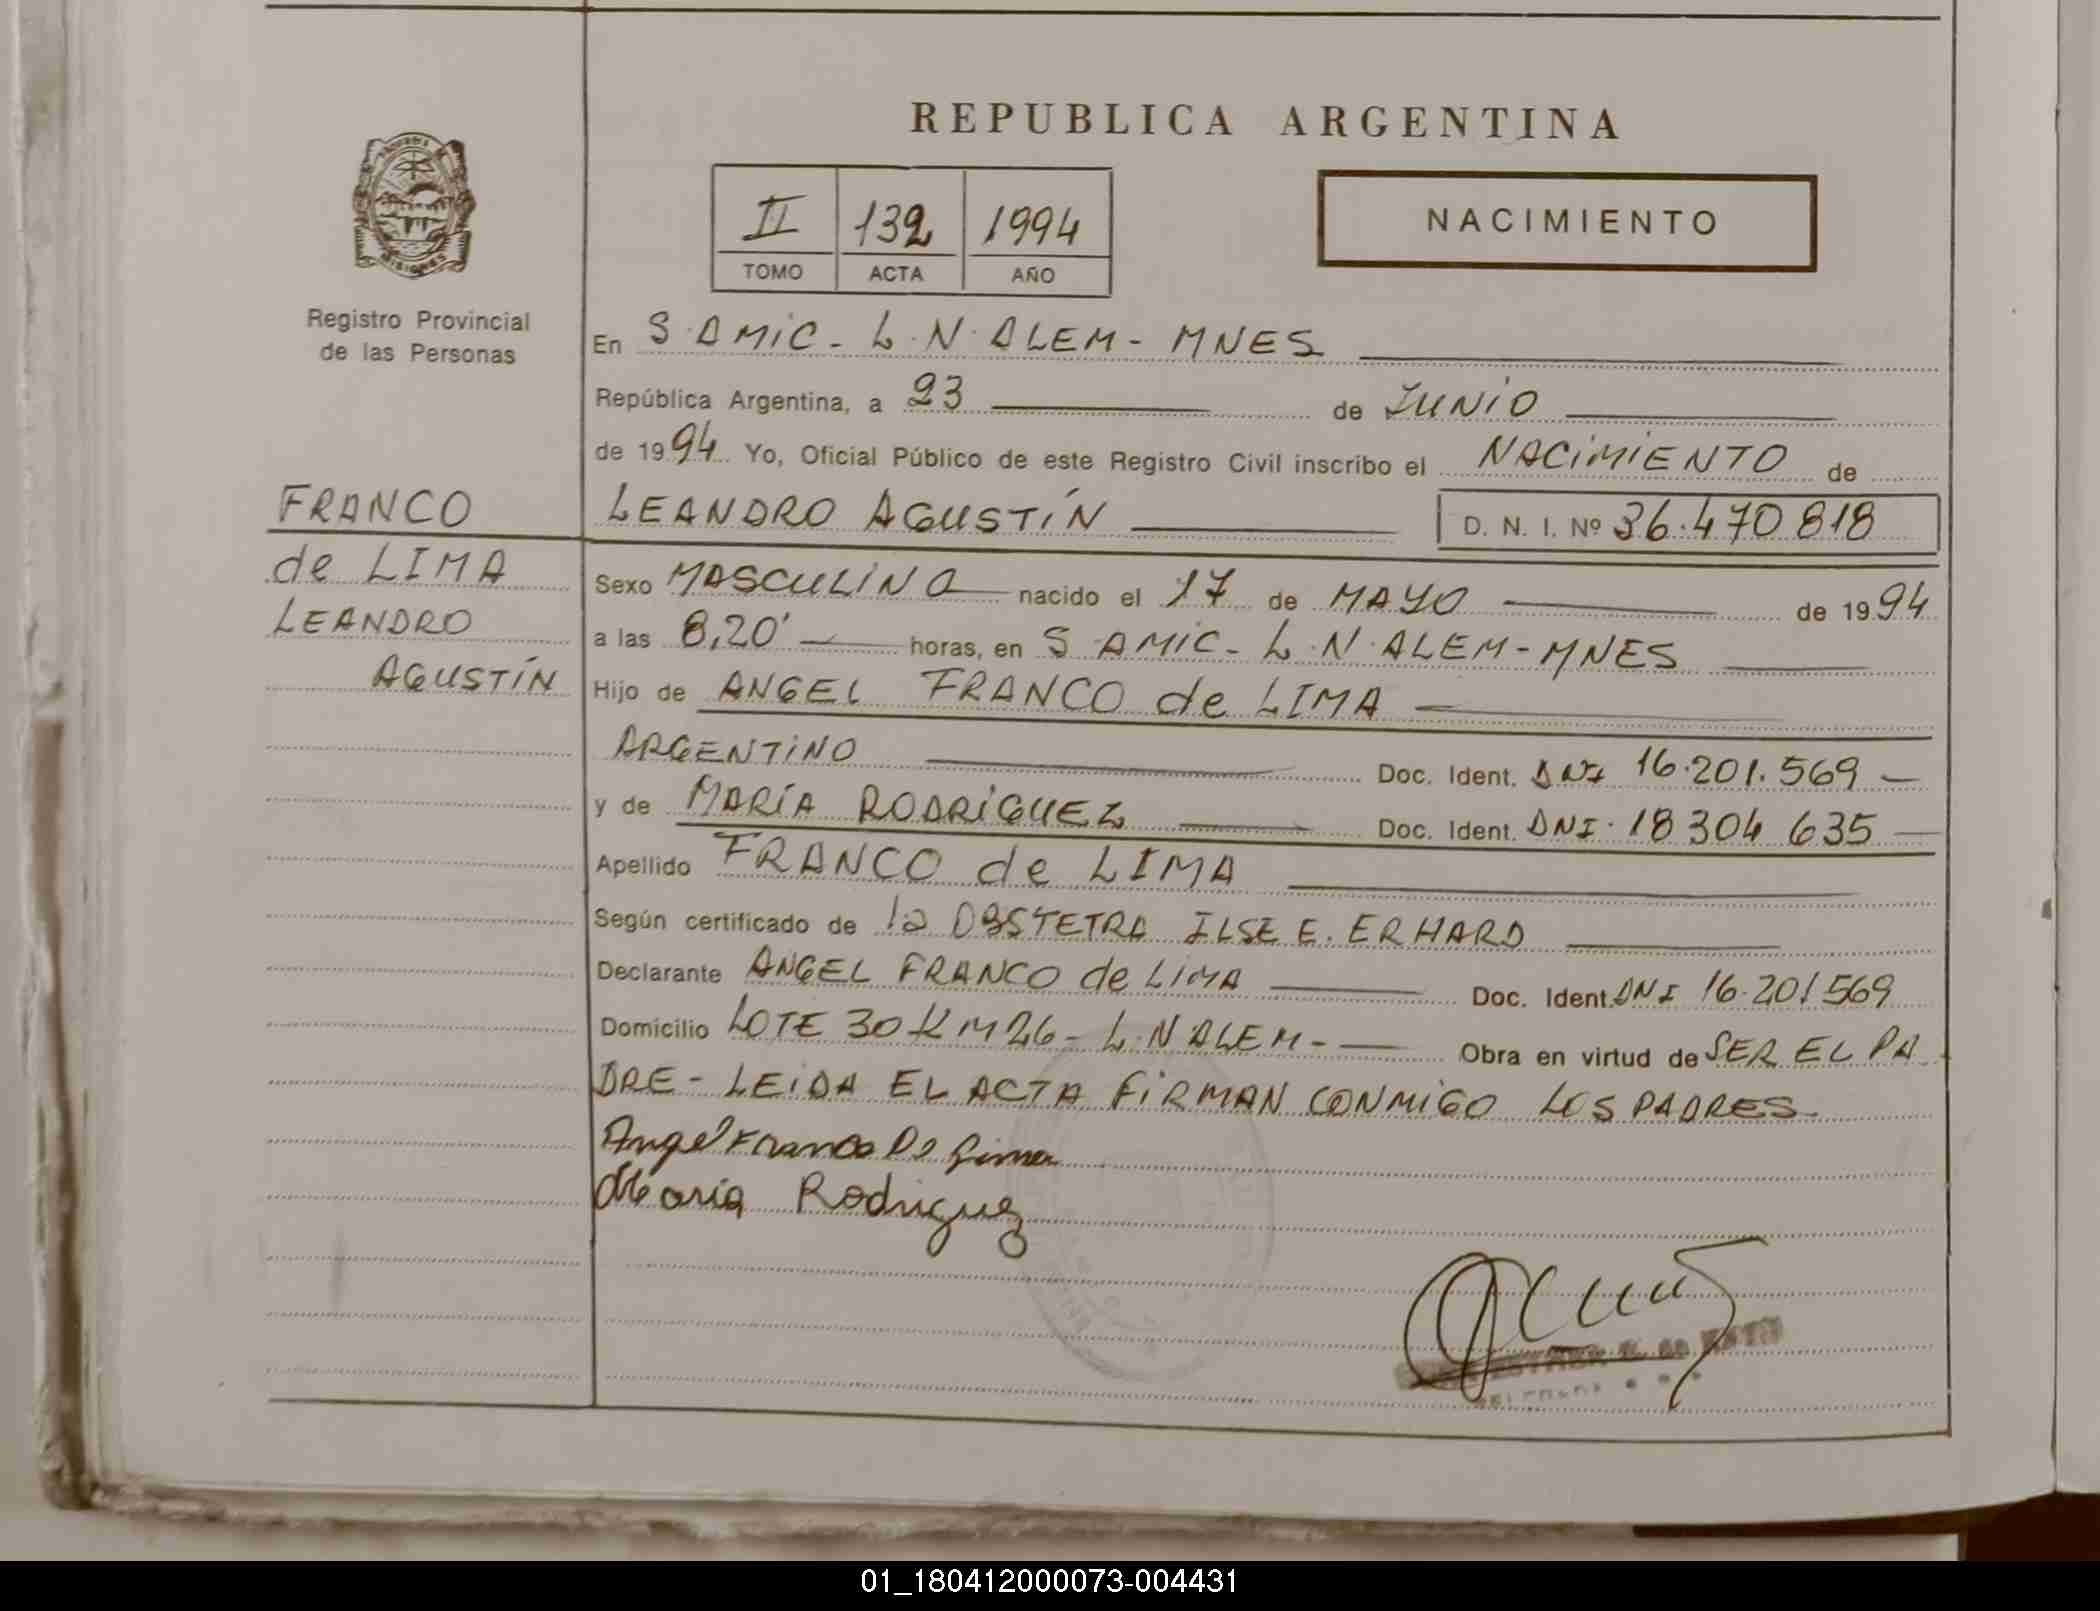 REPUBLICA ARGENTINA
II 132 1994
TOMO ACTA AÑO
NACIMIENTO
MISIONES
Registro Provincial
de las Personas
FRANCO
de LIMA
LEANDRO
AGUSTÍN
En S. AMIC - L. N. ALEM - MNES
República Argentina, a 23 de JUNIO
de 1994 Yo, Oficial Público de este Registro Civil inscribo el NACIMIENTO de
LEANDRO AGUSTÍN D. N. I. Nº 36.470 818
Sexo MASCULINO nacido el 17 de MAYO de 1994
a las 8,20' horas, en S AMIC - L. N. ALEM - MNES
Hijo de ANGEL FRANCO de LIMA
ARGENTINO Doc. Ident. DNI 16.201.569
y de MARÍA RODRÍGUEZ Doc. Ident. DNI. 18 304 635
Apellido FRANCO de LIMA
Según certificado de la OBSTETRA ILSE E. ERHARD
Declarante ANGEL FRANCO de LIMA Doc. Ident. DNI 16.201569
Domicilio LOTE 30 KM 26 - L. N ALEM - Obra en virtud de SER EL PA
DRE - LEIDA EL ACTA FIRMAN CONMIGO LOS PADRES
Angel Franco De Lima
María Rodriguez
01_180412000073-004431